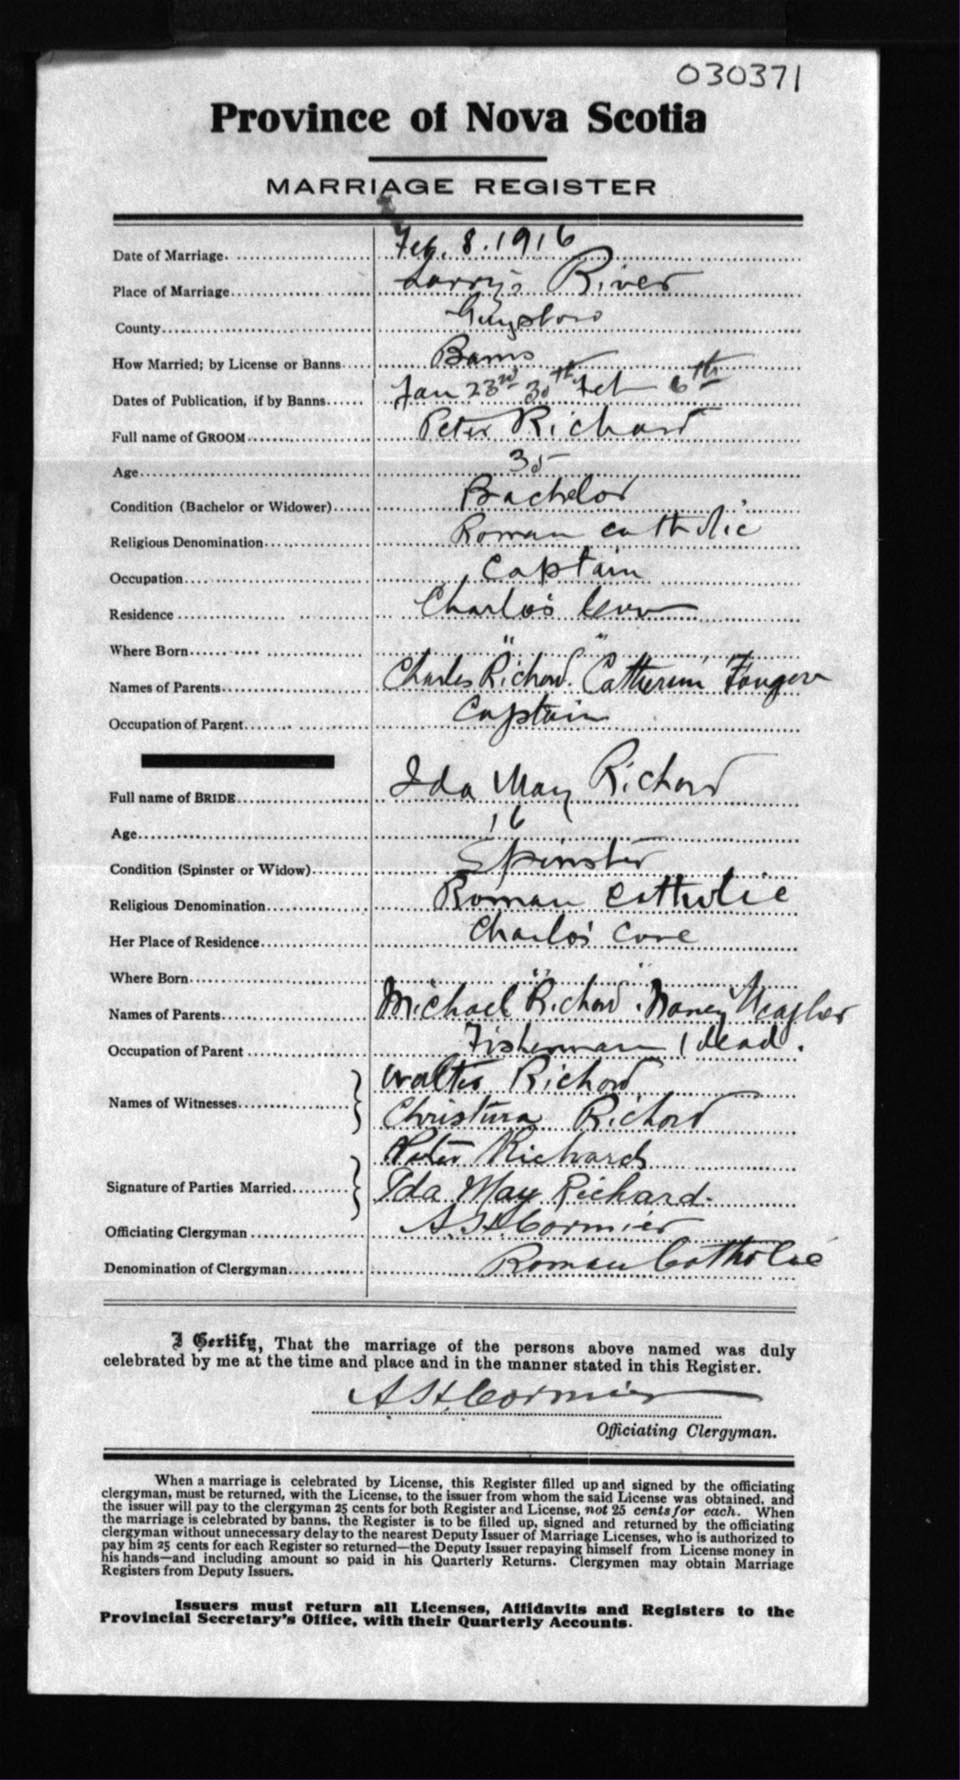 030371
Province of Nova Scotia
MARRIAGE REGISTER
Date of Marriage. Feb. 8. 1916
Place of Marriage Larry's River
County Guysboro
How Married; by License or Banns Banns
Dates of Publication, if by Banns Jan 23rd 30th Feb 6th
Full name of GROOM Peter Richard
Age 35
Condition (Bachelor or Widower) Bachelor
Religious Denomination Roman catholic
Occupation Captain
Residence Charlo's Cove
Where Born " "
Names of Parents Charles Richard. Catherine Fougere
Occupation of Parent Captain
Full name of BRIDE Ida May Richard
Age 16
Condition (Spinster or Widow) Spinster
Religious Denomination Roman Catholic
Her Place of Residence Charlo's Cove
Where Born " "
Names of Parents Michael Richard. Nancy Meagher
Occupation of Parent Fisherman (dead.
Names of Witnesses Walter Richard
Christina Richard
Peter Richard
Signature of Parties Married Ida May Richard.
Officiating Clergyman A. H. Cormier
Denomination of Clergyman Roman Catholic
I Certify, That the marriage of the persons above named was duly
celebrated by me at the time and place and in the manner stated in this Register.
A. H. Cormier
Officiating Clergyman.
When a marriage is celebrated by License, this Register filled up and signed by the officiating
clergyman, must be returned, with the License, to the issuer from whom the said License was obtained, and
the issuer will pay to the clergyman 25 cents for both Register and License, not 25 cents for each. When
the marriage is celebrated by banns, the Register is to be filled up, signed and returned by the officiating
clergyman without unnecessary delay to the nearest Deputy Issuer of Marriage Licenses, who is authorized to
pay him 25 cents for each Register so returned—the Deputy Issuer repaying himself from License money in
his hands—and including amount so paid in his Quarterly Returns. Clergymen may obtain Marriage
Registers from Deputy Issuers.
Issuers must return all Licenses, Affidavits and Registers to the
Provincial Secretary's Office, with their Quarterly Accounts.